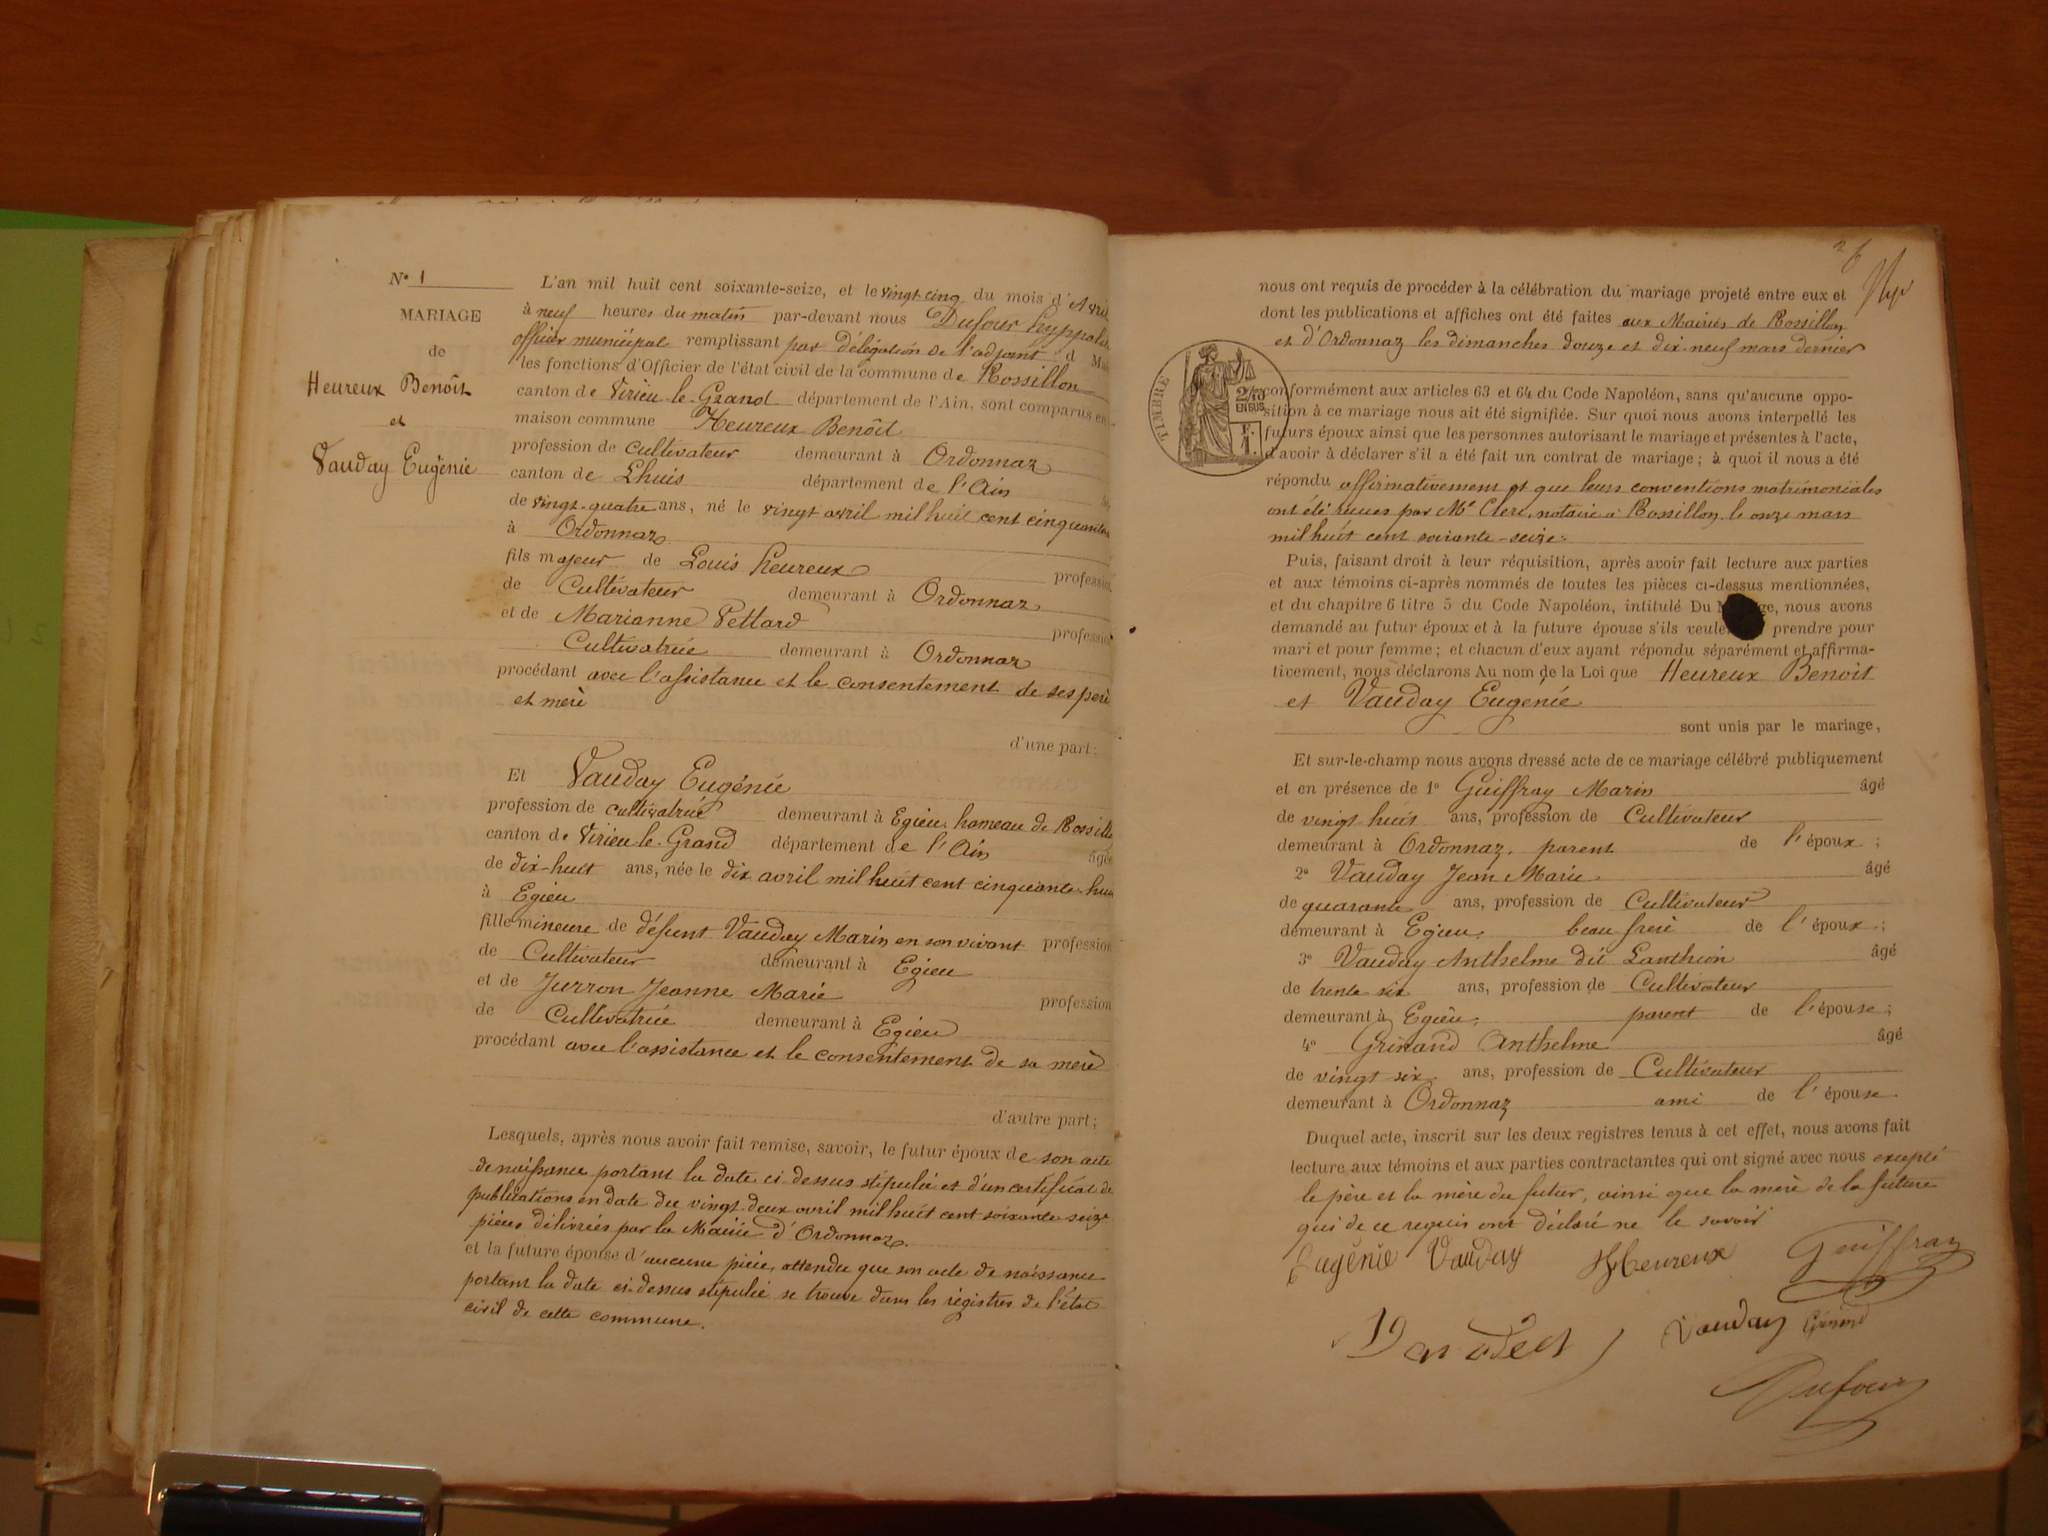 N° 1
MARIAGE
de
Heureux Benoît
et
Vauday Eugénie
L'an mil huit cent soixante-seize, et le vingt-cinq du mois d'Avril
à neuf heures du matin par-devant nous Dufour hyppolite
officier municipal remplissant par délégation de l'adjoint d
les fonctions d'Officier de l'état civil de la commune de Rossillon
canton de Virieu-le-Grand département de l'Ain, sont comparus en
maison commune Heureux Benôit
profession de cultivateur demeurant à Ordonnaz
canton de Lhuis département de l'Ain
de vingt-quatre ans, né le vingt avril mil huit cent cinquante
à Ordonnaz
fils majeur de Louis heureux profession
de Cultivateur demeurant à Ordonnaz
et de Marianne Pellard profession
Cultivatrice demeurant à Ordonnaz
procédant avec l'assistance et le consentement de ses père
et mère
d'une part;
Et Vauday Eugénie
profession de cultivatrice demeurant à Egieu hameau de Rossillo
canton de Virieu-le-Grand département de l'Ain âgée
de dix-huit ans, née le dix avril mil huit cent cinquante-huit
à Egieu
fille mineure de défunt Vauday Marin en son vivant profession
de Cultivateur demeurant à Egieu
et de Jurron Jeanne Marie profession
de Cultivatrice demeurant à Egieu
procédant avec l'assistance et le consentement de sa mère
d'autre part;
Lesquels, après nous avoir fait remise, savoir, le futur époux de son acte
de naissance portant la date ci-dessus stipulée et d'un certificat de
publications en date du vingt-deux avril mil huit cent soixante-seize
pièces délivrées par la Mairie d'Ordonnaz.
et la future épouse d'aucune pièce, attendu que son acte de naissance
portant la date ci-dessus stipulée se trouve dans les régistres de l'état
civil de cette commune.
26
nous ont requis de procéder à la célébration du mariage projeté entre eux et
dont les publications et affiches ont été faites aux Mairies de Rossillon
et d'Ordonnaz les dimanches douze et dix-neuf mars dernier
TIMBRE
2/10
EN SUS
1 F.
conformément aux articles 63 et 64 du Code Napoléon, sans qu'aucune oppo-
sition à ce mariage nous ait été signifiée. Sur quoi nous avons interpellé les
futurs époux ainsi que les personnes autorisant le mariage et présentes à l'acte,
d'avoir à déclarer s'il a été fait un contrat de mariage; à quoi il nous a été
répondu affirmativement et que leurs conventions matrimoniales
ont été reçues par Me Clerc, notaire à Rossillon le onze mars
mil huit cent soixante-seize.
Puis, faisant droit à leur réquisition, après avoir fait lecture aux parties
et aux témoins ci-après nommés de toutes les pièces ci-dessus mentionnées,
et du chapitre 6 titre 5 du Code Napoléon, intitulé Du M ge, nous avons
demandé au futur époux et à la future épouse s'ils veule prendre pour
mari et pour femme; et chacun d'eux ayant répondu séparément et affirma-
tivement, nous déclarons Au nom de la Loi que Heureux Benoit
et Vauday Eugénie
sont unis par le mariage,
Et sur-le-champ nous avons dressé acte de ce mariage célébré publiquement
et en présence de 1° Guiffray Marin âgé
de vingt huit ans, profession de Cultivateur
demeurant à Ordonnaz. parent de l'époux;
2° Vauday Jean Marie âgé
de quarante ans, profession de Cultivateur
demeurant à Egieu. beau frère de l'époux;
3° Vauday Anthelme dit Lanthion âgé
de trente six ans, profession de Cultivateur
demeurant à Egieu. parent de l'épouse;
4° Grinand Anthelme âgé
de vingt six ans, profession de Cultivateur
demeurant à Ordonnaz ami de l'épouse
Duquel acte, inscrit sur les deux registres tenus à cet effet, nous avons fait
lecture aux témoins et aux parties contractantes qui ont signé avec nous excepté
le père et la mère du futur, ainsi que la mère de la future
qui de ce requis ont déclaré ne le savoir
Eugénie Vauday Heureux Guiffray
Vauday
Dufour